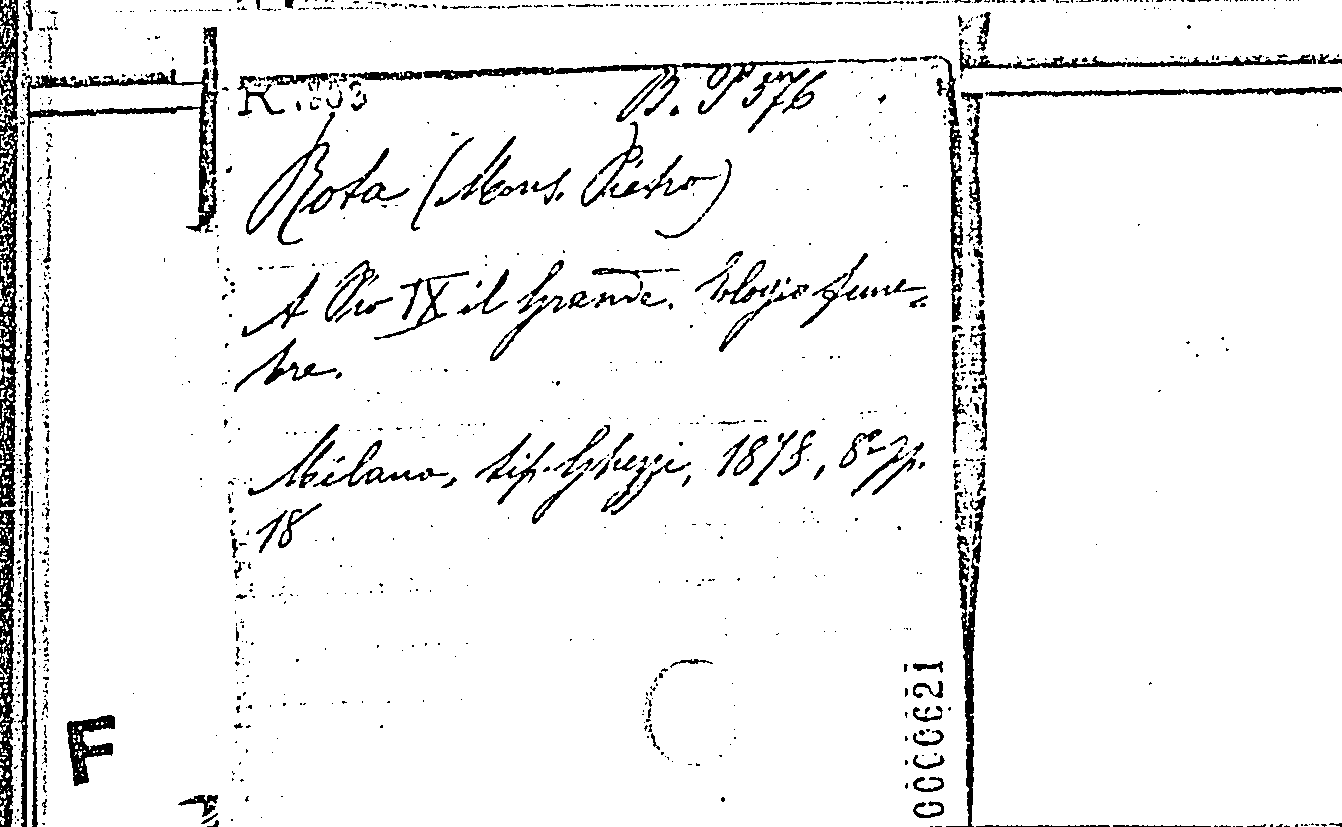 R.803 B. P 576
Rota (Mons. Pietro)
A Pio IX il Grande. Elogio fune=
bre.
Milano, tip. Ghezzi, 1878, 8º pp.
18
F
0000621